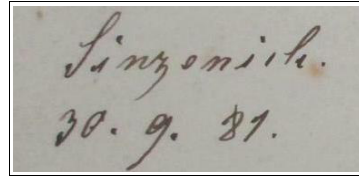 Sinzenich.
30. 9. 81.